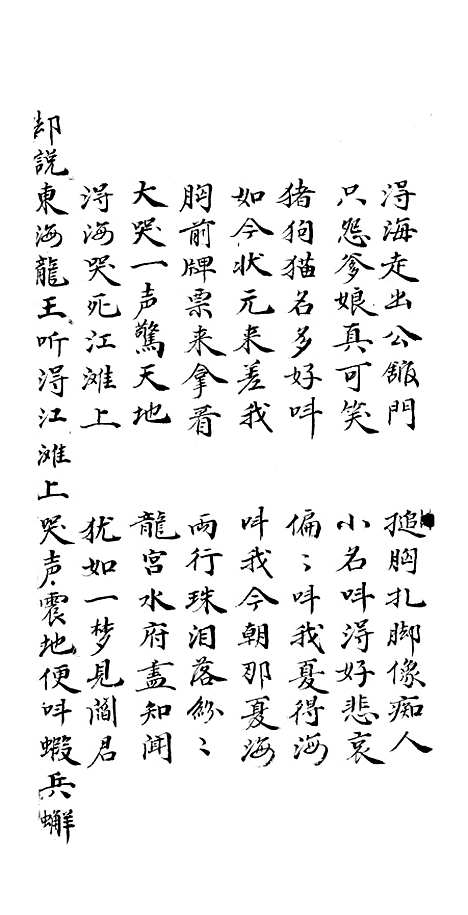 淂海走出公舘門　搥胸扎脚像痴人
只怨爹娘真可笑　小名呌淂好悲哀
猪狗猫名多好呌　偏〻呌我夏得海
如今状元来差我　呌我今朝那夏海
胸前牌票来拿看　両行珠泪落紛〻
大哭一声驚天地　龍宮水府盡知闻
淂海哭死江滩上　犹如一梦見閻君
却説東海龍王听淂江滩上哭声震地便呌蝦兵蠏